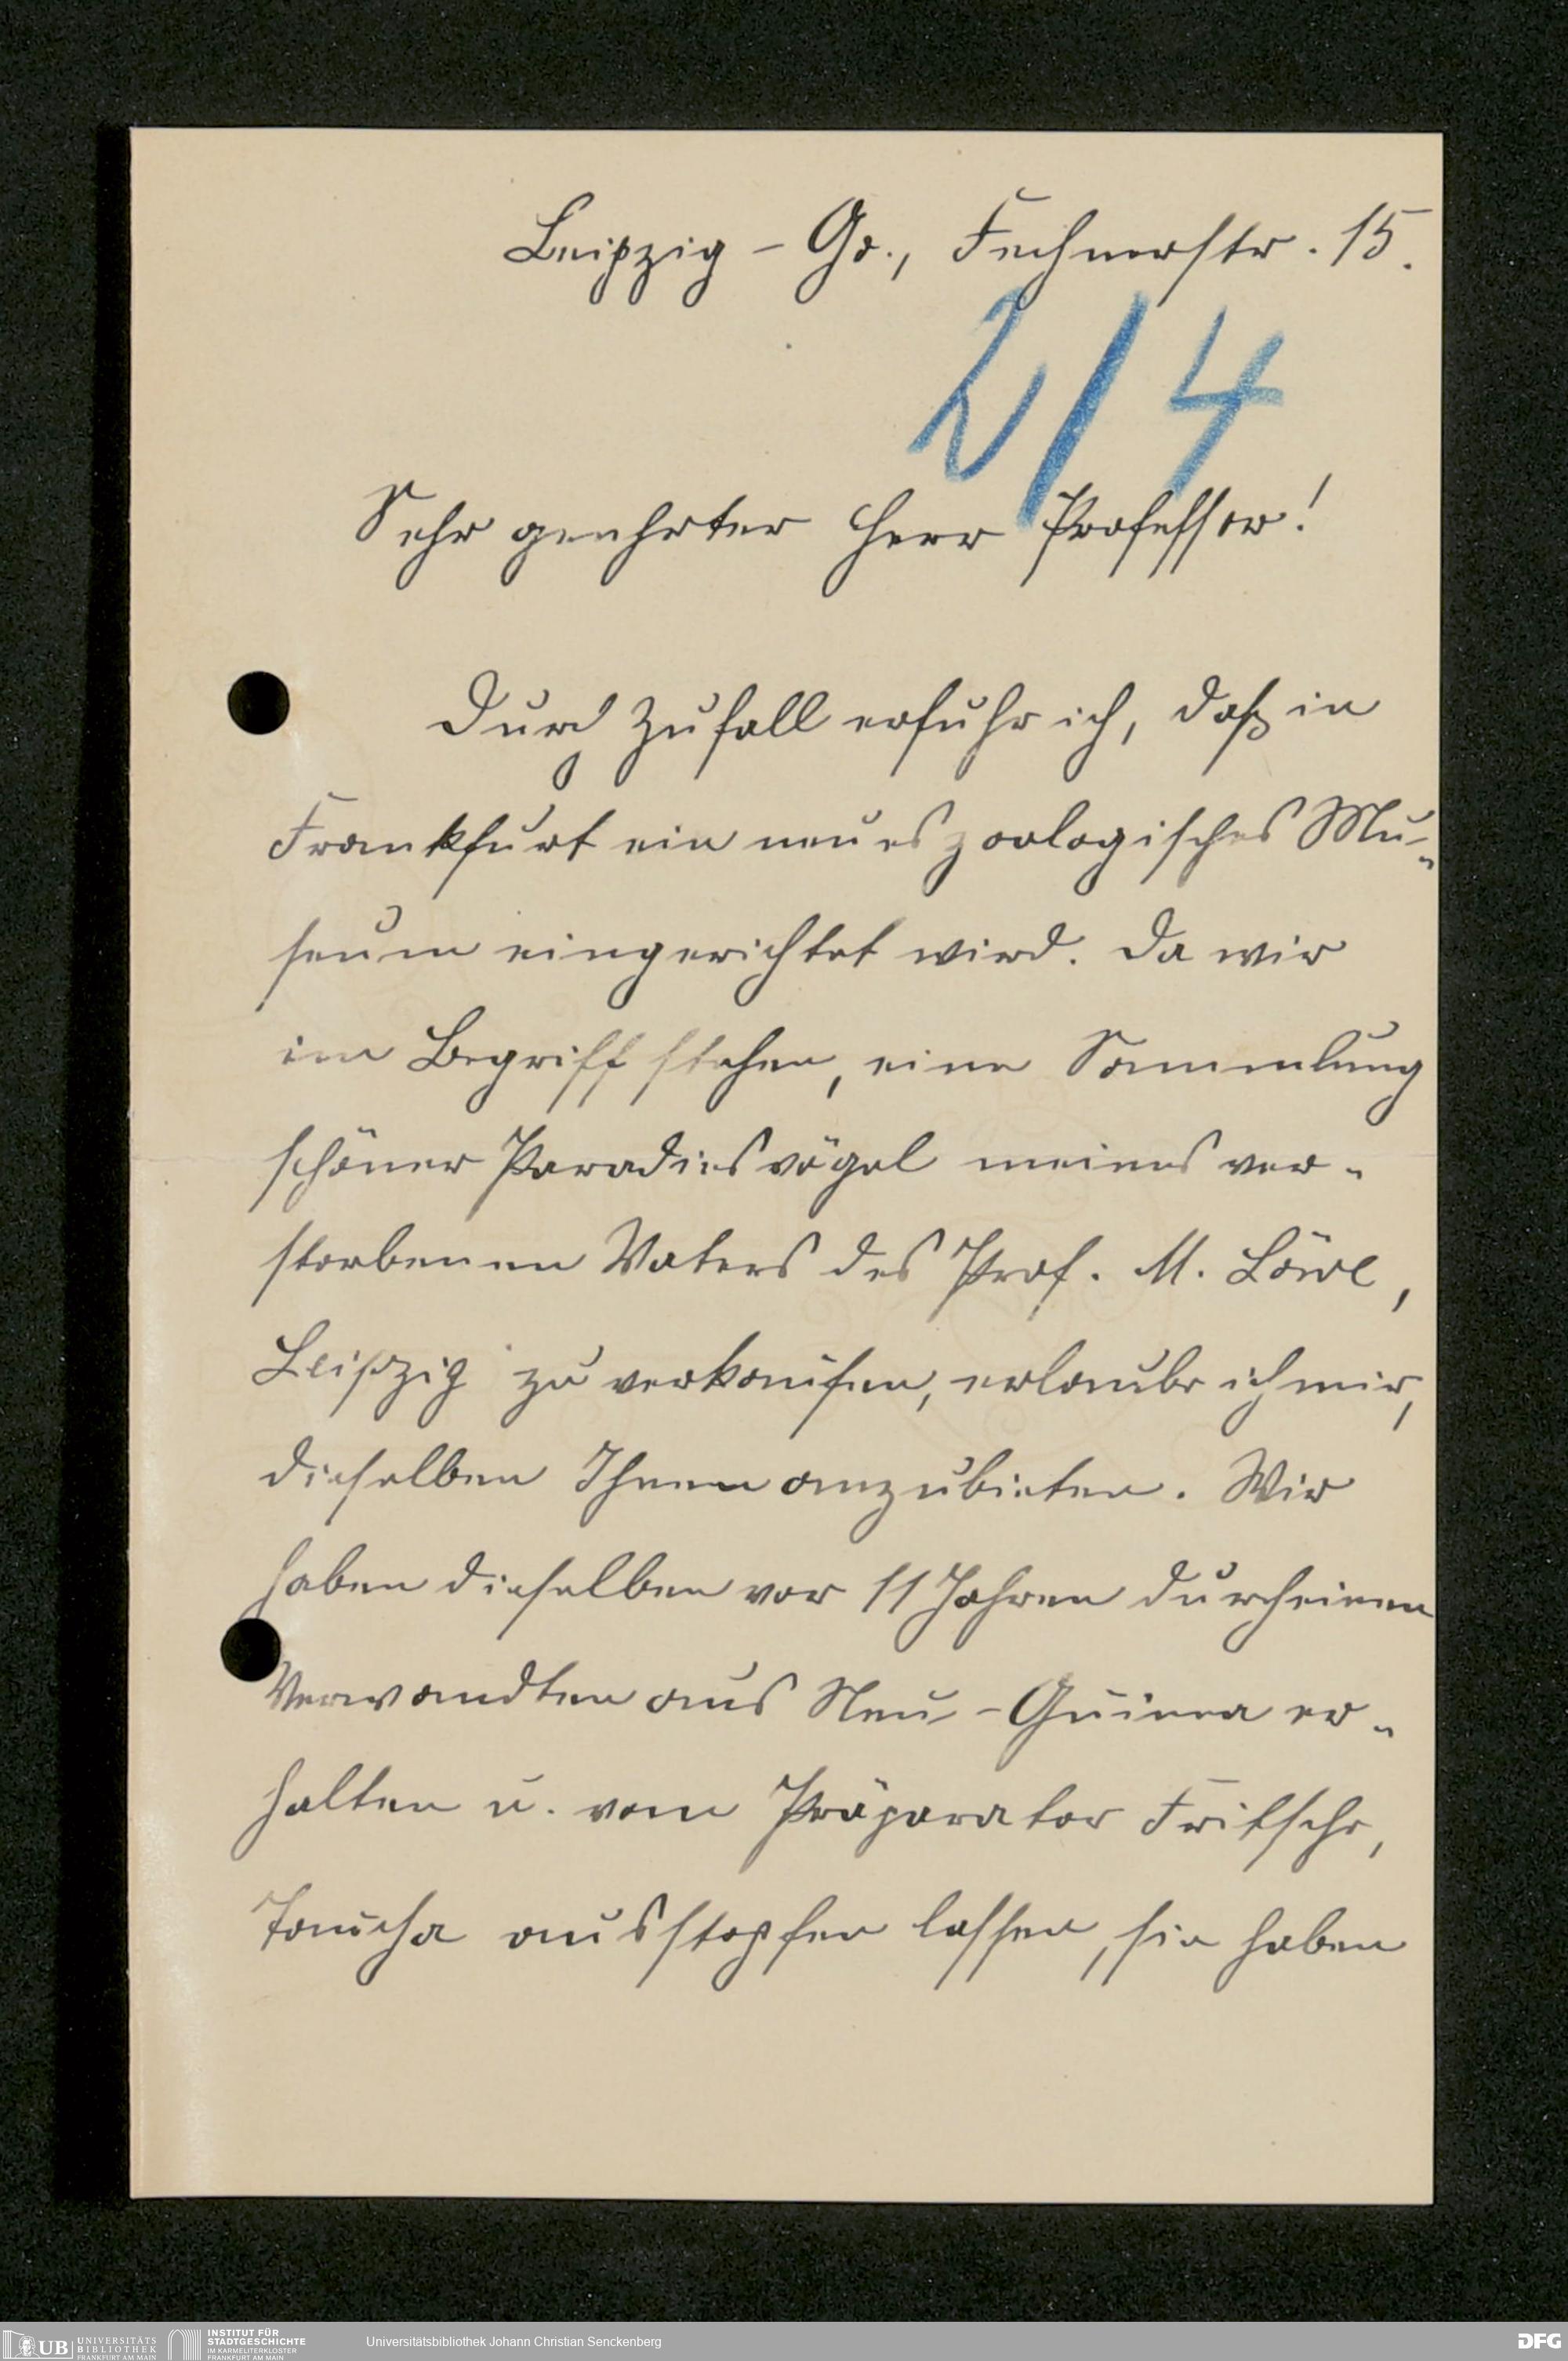 Leipzig - Go., Fechnerstr. 15.
2/4
Sehr geehrter Herr Professor!
Durch Zufall erfuhr ich, daß in
Frankfurt ein neues zoologisches Mu-
seum eingerichtet wird. Da wir
im Begriff stehen, eine Sammlung
schöner Paradiesvögel meines ver-
storbenen Vaters des Prof. M. Löwe,
Leipzig zu verkaufen, erlaube ich mir,
dieselben Ihnen anzubieten. Wir
haben dieselben vor 11 Jahren durch einen
Verwandten aus Neu-Guinea er-
halten u. vom Präparator Fritsche,
Taucha ausstopfen lassen, sie haben
UB UNIVERSITÄTS
BIBLIOTHEK
FRANKFURT AM MAIN
INSTITUT FÜR
STADTGESCHICHTE
IM KARMELITERKLOSTER
FRANKFURT AM MAIN
Universitätsbibliothek Johann Christian Senckenberg
DFG